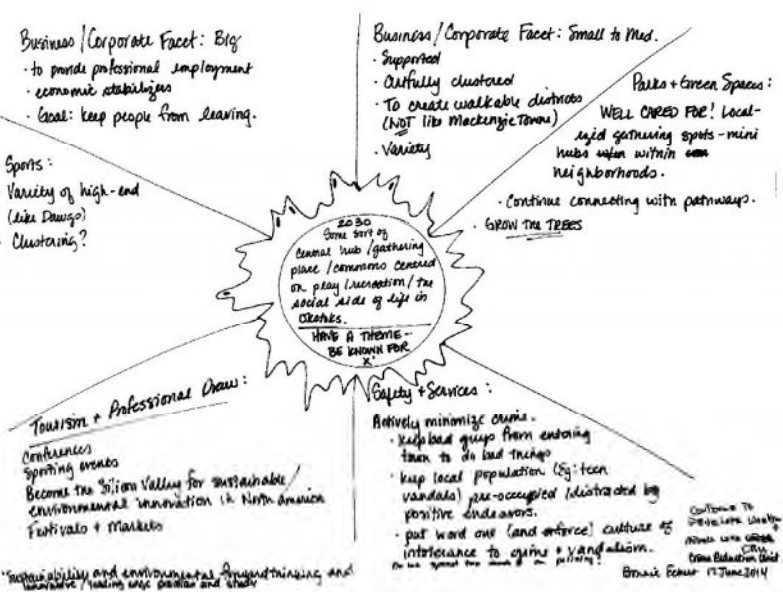 Business/Corporate Facet: Big
· to provide professional employment
· economic stabilizers
· Goal: keep people from leaving.
Business/Corporate Facet: Small to Med.
· Supported
· Artfully clustered
· To create walkable districts
(NOT like Mackenzie Towne)
· Variety
Parks + Green Spaces:
WELL CARED FOR! Local-
ized gathering spots - mini
hubs within
neighborhoods.
· Continue connecting with pathways.
· GROW THE TREES
Sports:
Variety of high-end
(like Dawgs)
· Clustering?
2030
Some sort of
central hub/gathering
place/commons centered
on play/recreation/the
social side of life in
Okotoks.
HAVE A THEME--
BE KNOWN FOR
"X"
Tourism + Professional Draw:
Conferences
Sporting events
Become the Silicon Valley for sustainable/
environmental innovation in North America
Festivals + Markets
Sustainability and environmental forward thinking and
innovative/leading edge and study
Safety + Services:
Actively minimize crime.
· keep bad guys from entering
town to do bad things
· keep local population (Eg: teen
vandals) pre-occupied/distracted by
positive endeavors.
· put word out (and enforce) culture of
intolerance to crime + vandalism.
Do we spend too much $ on policing?
Continue to
Crime Reduction Unit
Bonnie Eckert 17 June 2014